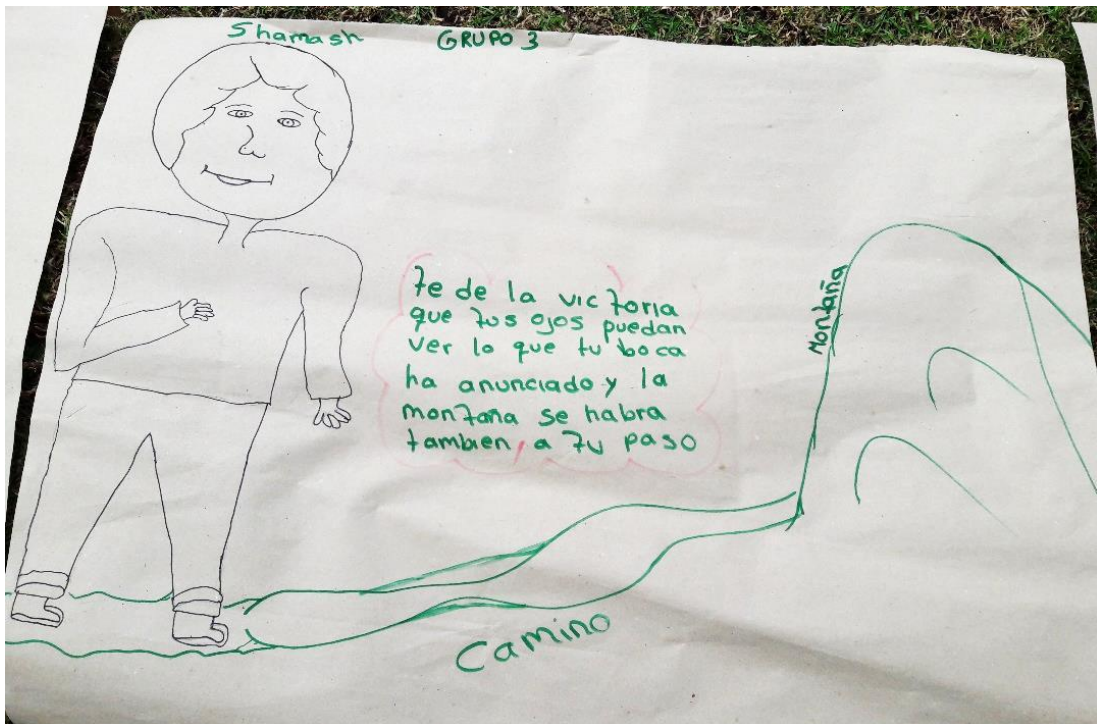 Shamash GRUPO 3
Te de la victoria
que tus ojos puedan
ver lo que tu boca
ha anunciado y la
montaña se habra
tambien, a tu paso
Montaña
Camino